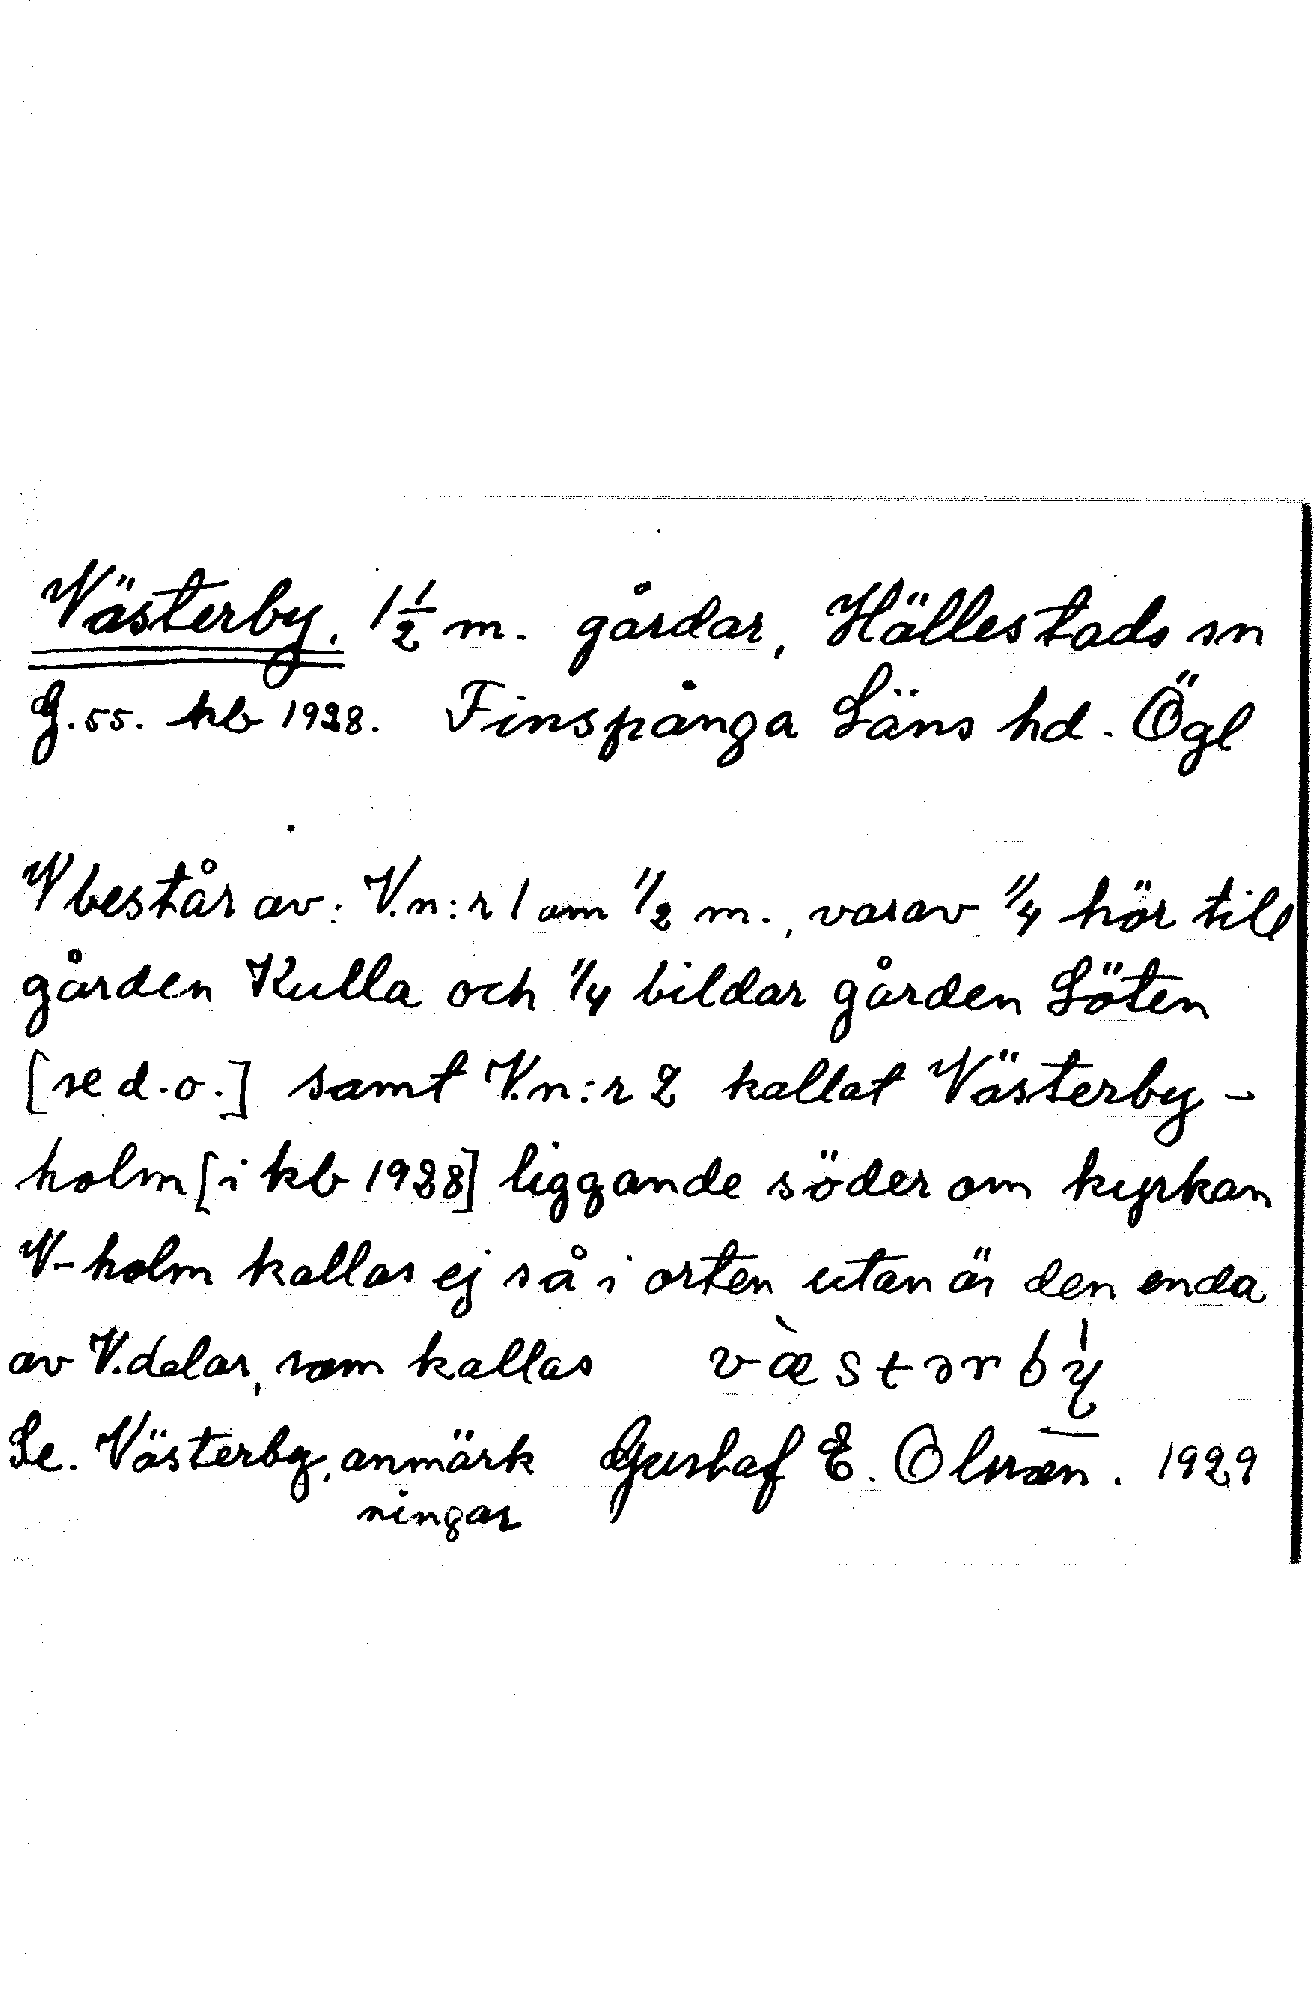 Västerby. 1½ m. gårdar, Hällestads sn
G.55. kb 1928. Finspånga Läns hd. Ögl
V består av: V.n:r 1 om 1/2 m., varav 1/4 hör till
gården Kulla och 1/4 bildar gården Löten
[se d.o.] samt V.n:r 2 kallat Västerby-
holm [i kb 1928] liggande söder om kyrkan
V-holm kallas ej så i orten utan är den enda
av V.delar, som kallas væ̀stərbý
Se. Västerby, anmärk Gustaf E. Olsson. 1929
ningar